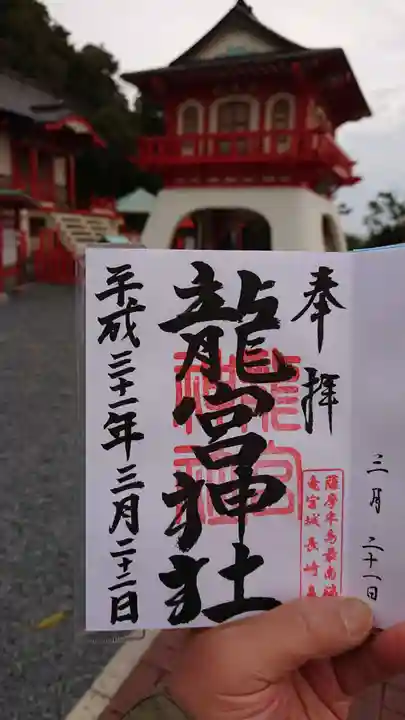 奉拝
龍宮神社
平成三十一年三月二十二日
薩摩半島最南端
竜宮城長崎鼻
三月二十一日